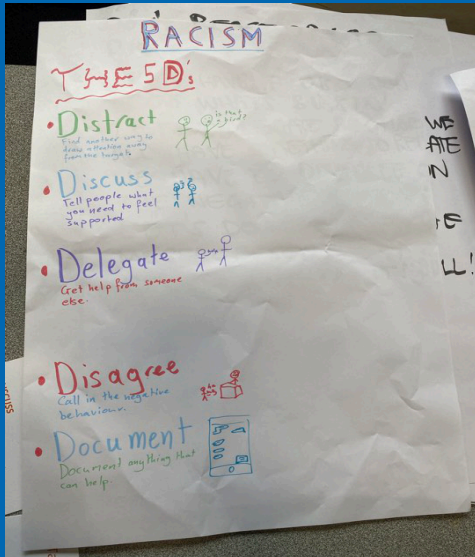 RACISM
THE 5 D's
• Distract
Find another way to
draw attention away
from the target.
is that
a bird?
• Discuss
Tell people what
you need to feel
supported
• Delegate
Get help from someone
else.
• Disagree
Call in the negative
behaviour.
• Document
Document anything that
can help.